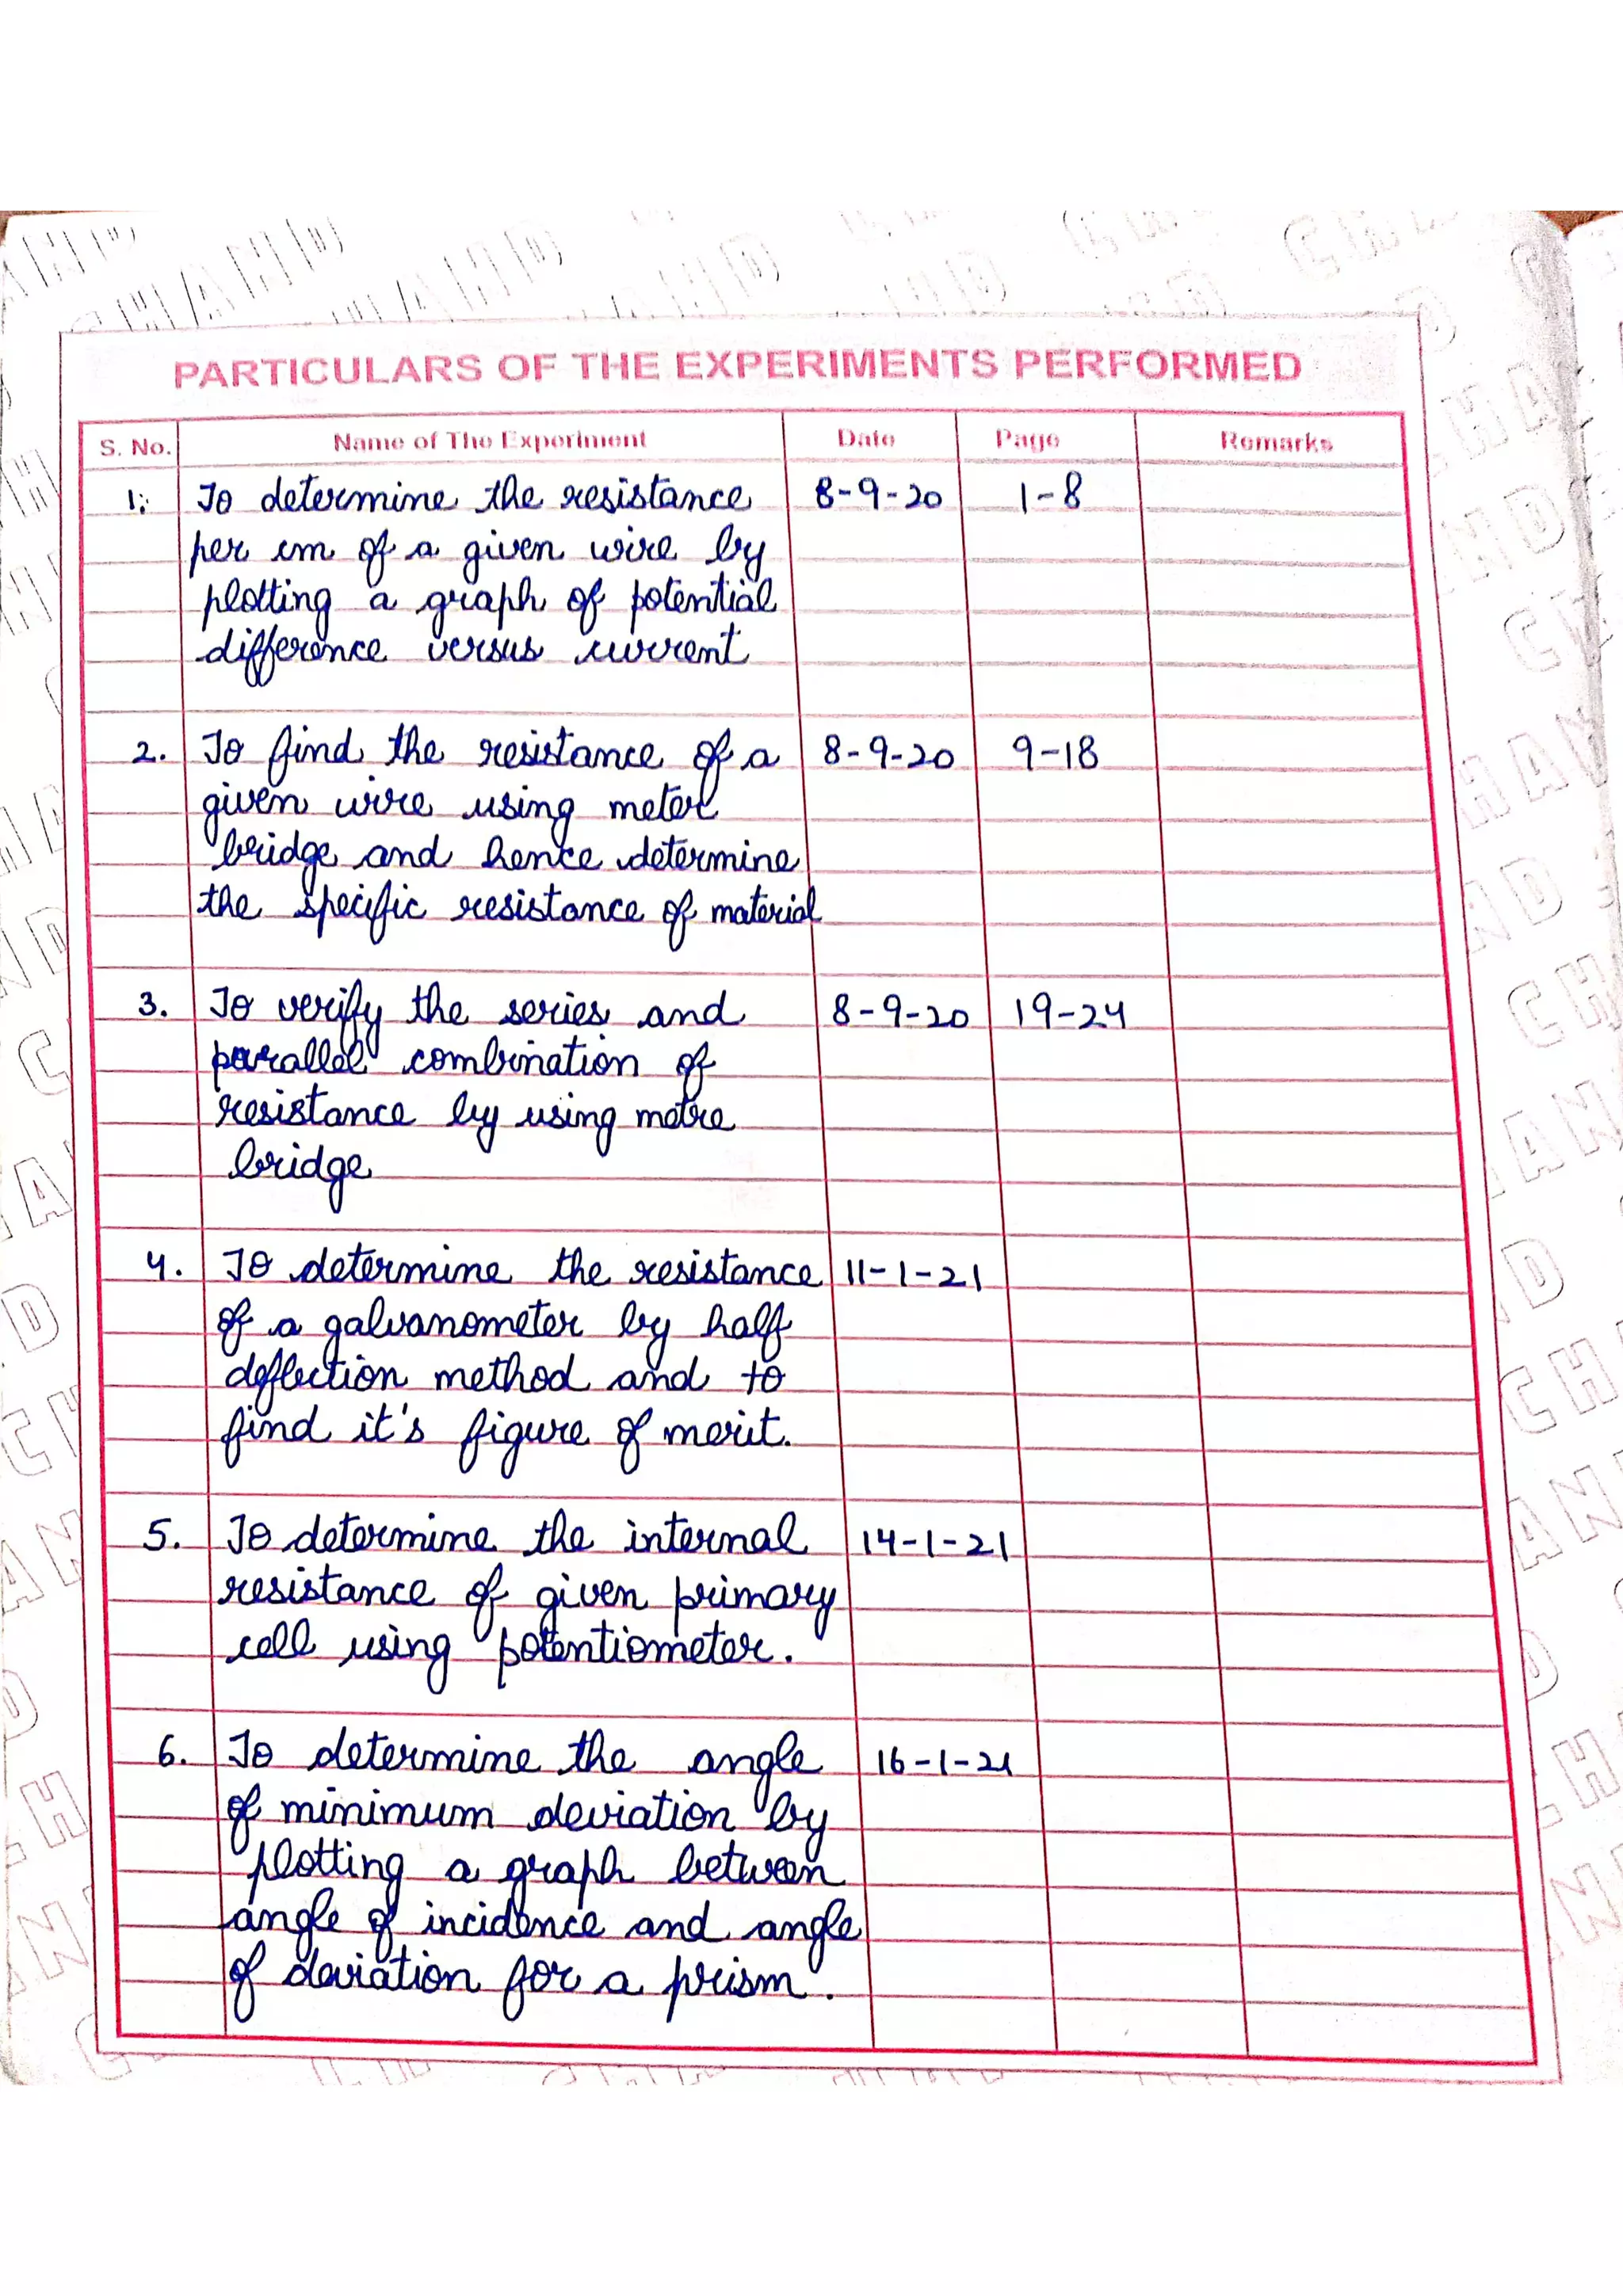 PARTICULARS OF THE EXPERIMENTS PERFORMED
S. No. Name of The Experiment Date Page Remarks
1. To determine the resistance 8-9-20 1-8
per cm of a given wire by
plotting a graph of potential
difference versus current
2. To find the resistance of a 8-9-20 9-18
given wire using meter
bridge and hence determine
the specific resistance of material
3. To verify the series and 8-9-20 19-24
parallel combination of
resistance by using metre
bridge
4. To determine the resistance 11-1-21
of a galvanometer by half
deflection method and to
find it's figure of merit.
5. To determine the internal 14-1-21
resistance of given primary
cell using potentiometer.
6. To determine the angle 16-1-21
of minimum deviation by
plotting a graph between
angle of incidence and angle
of deviation for a prism.